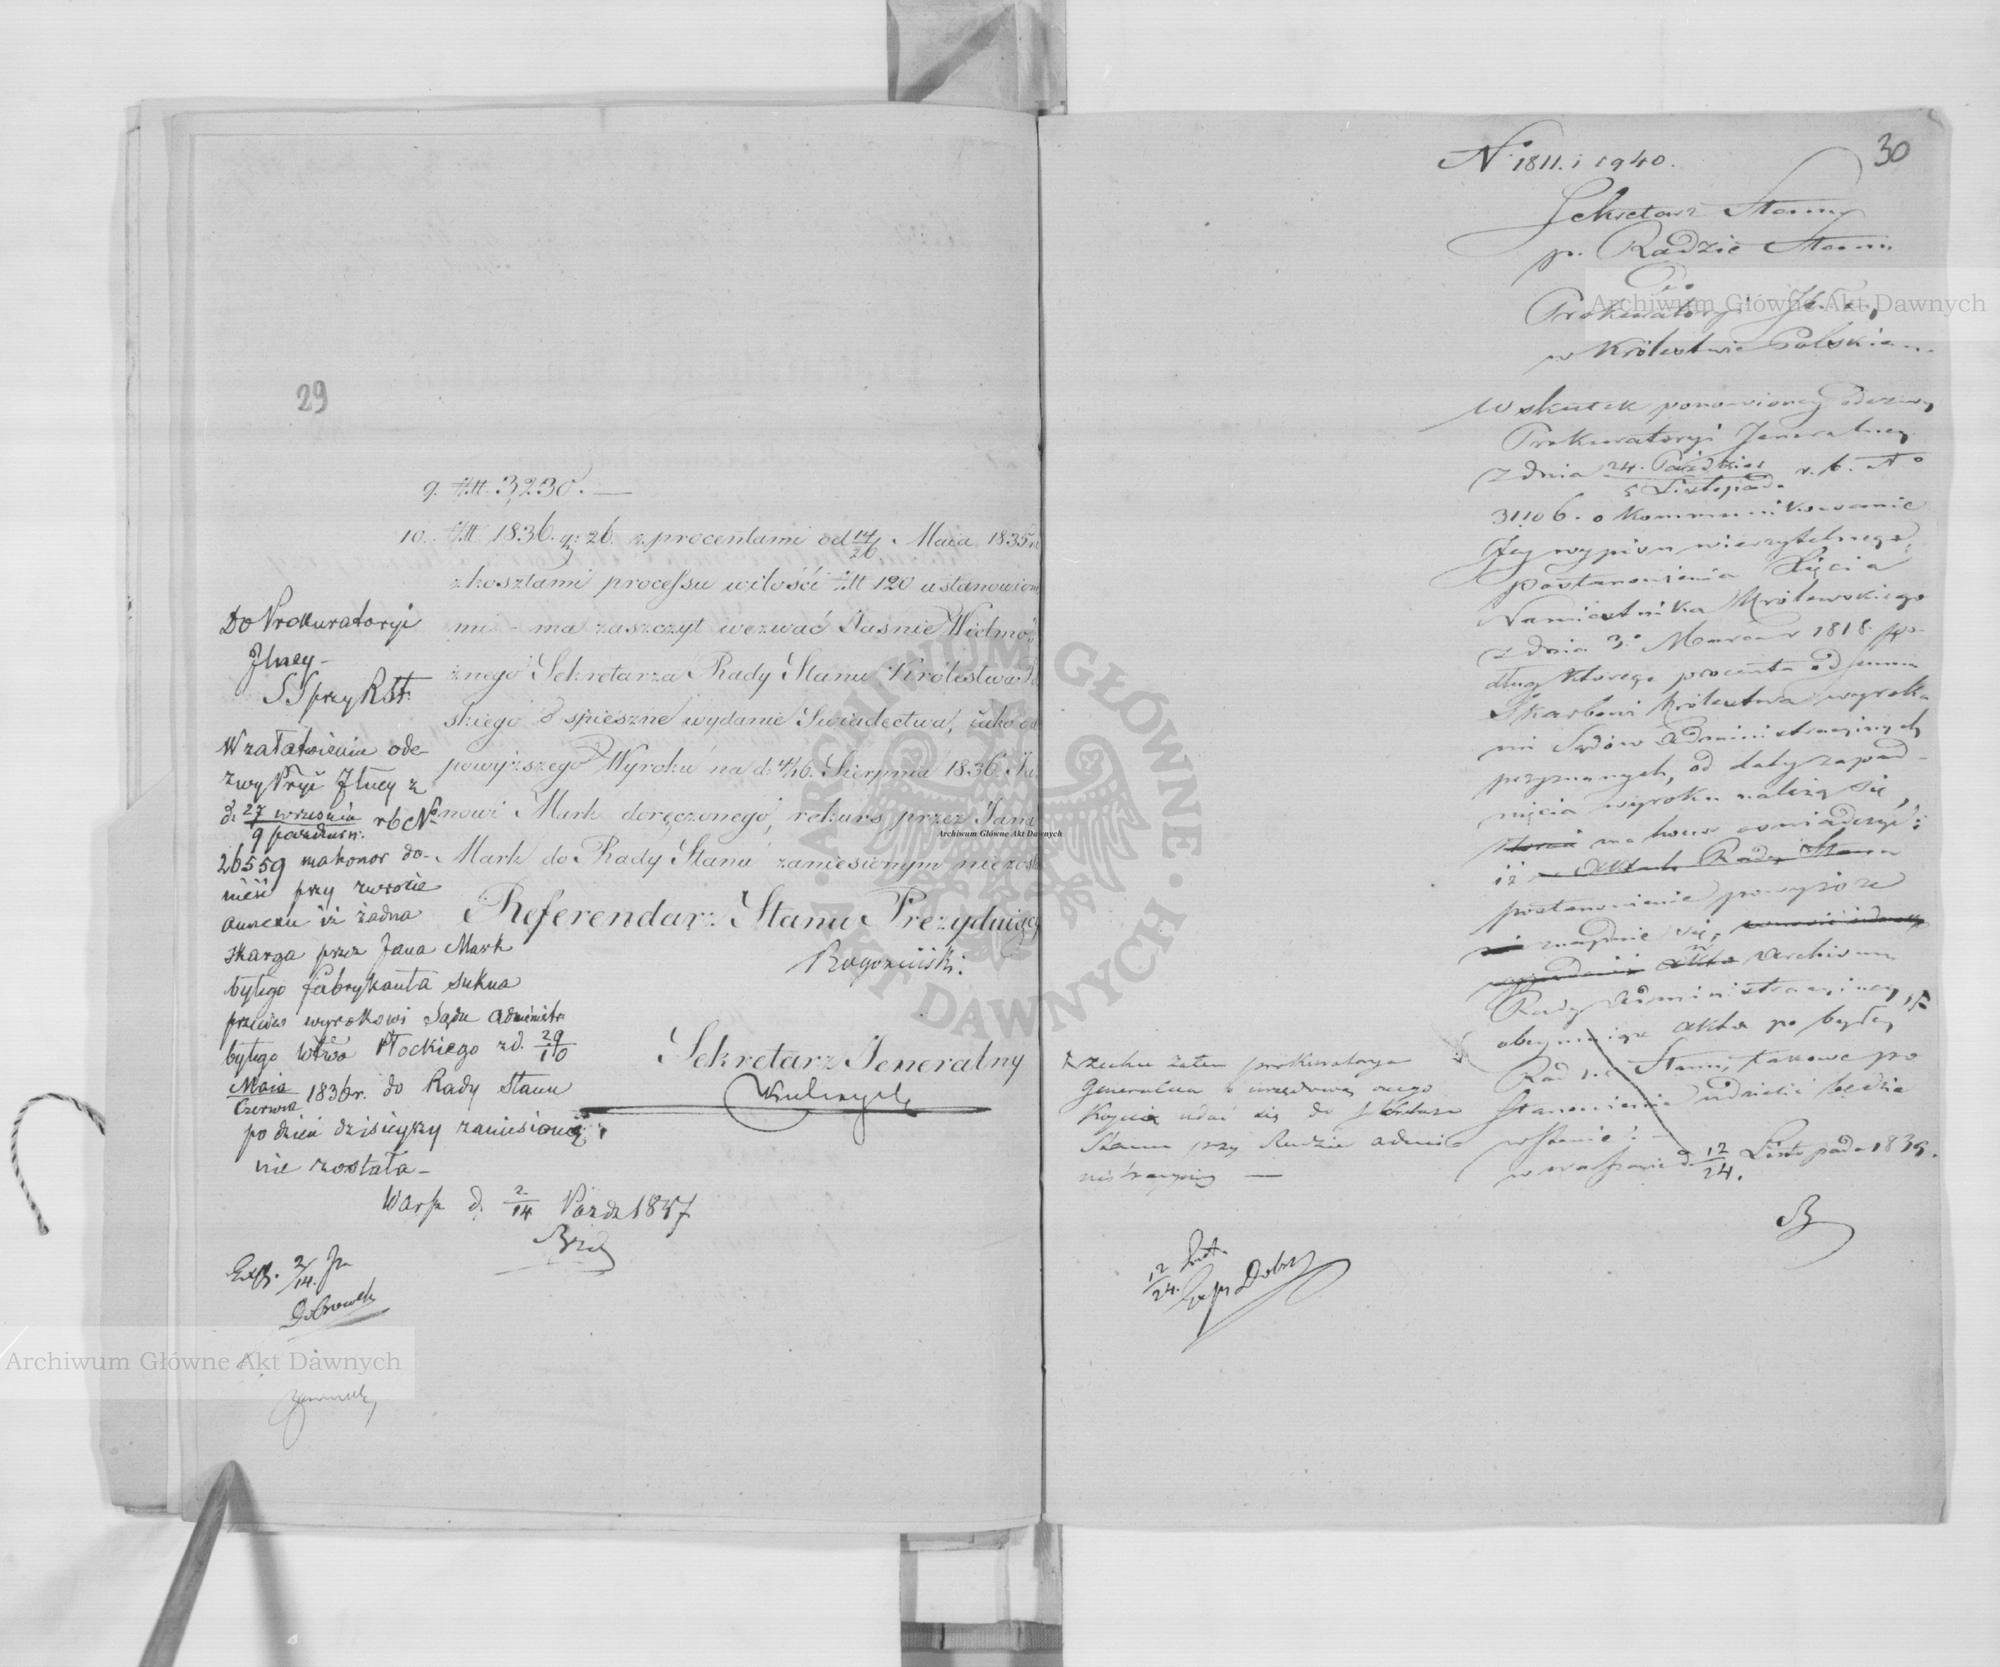 29
9. 3230. —
10. 1836. gr: 26. z procentami od 14/26 Maia 1835 r
z kosztami processu w ilości 120 ustanowione
mi - ma zaszczyt wezwać Jaśnie Wielmo-
żnego Sekretarza Rady Stanu Królestwa Pol
skiego o spieszne wydanie Swiadectwa, iako od
powyższego Wyroku na d: 4/16 Sierpnia 1836 Ja
nowi Mark doręczonego, rekurs przez Jana
Mark do Rady Stanu zaniesionym niezosta
Referendarz Stanu Prezyduiący
Sekretarz Jeneralny
Do Prokuratoryi
Jlney -
SS przy RSt.
W załatwieniu ode-
zwy Pryi Jlney z
d. 27 września / 9 pazdziern: rb No
26559 ma honor do-
nieść przy zwrocie
annexu iż żadna
skarga przez Jana Mark
byłego fabrykanta sukna
przeciw wyrokowi Sądu Administr:
byłego Wtwa Płockiego z d. 29/10
Maia/Czerwca 1836 r. do Rady Stanu
po dzień dzisieyszy zaniesioną
nie została -
Warsz d. 2/14 Pazdz 1837
Exp. 2/14.
30
N 1811. i 1940.
Sekretarz Stanu
p. Radzie Stanu
Do
Prokuratoryi Jlney
w Królestwie Polskiem
W skutek ponowioney odezwy
Prokuratoryi Jeneralney
z dnia 24. Paździer / 5 Listopada r. b. No
31106. o kommunikowanie
Jey wypisu wierzytelnego,
postanowienia Xięcia
Namiestnika Królewskiego
z dnia 3. Marca 1818. po-
dług którego procenta od summ
Skarbowi Królestwa wyroka
mi Sądów Administracyinych
przyznanych, od daty zapad-
nięcia wyroku należą się,
ma honor oswiadczyć;
iż w aktach Rady Stanu
postanowienie powyższe
znayduie się,
akta Archiwum
Rady Administracyiney,
obeymuiące akta po byłey
Radzie Stanu, takowe po
stanowienie udzielić będzie
w stanie: -
w Warszawie d. 12/24. Listopada 1839.
zechce zatem prokuratorya
Generalna
udać się do Sekretarza
Stanu przy Radzie admi-
nistracyiney —
12/24.
Archiwum Główne Akt Dawnych
Archiwum Główne Akt Dawnych
Archiwum Główne Akt Dawnych
ARCHIWUM GŁÓWNE · AKT DAWNYCH ·